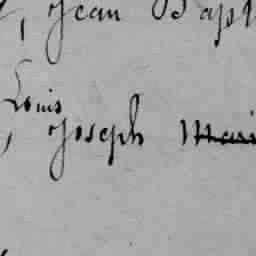 , Jean Bapt
Louis
, Joseph Mari